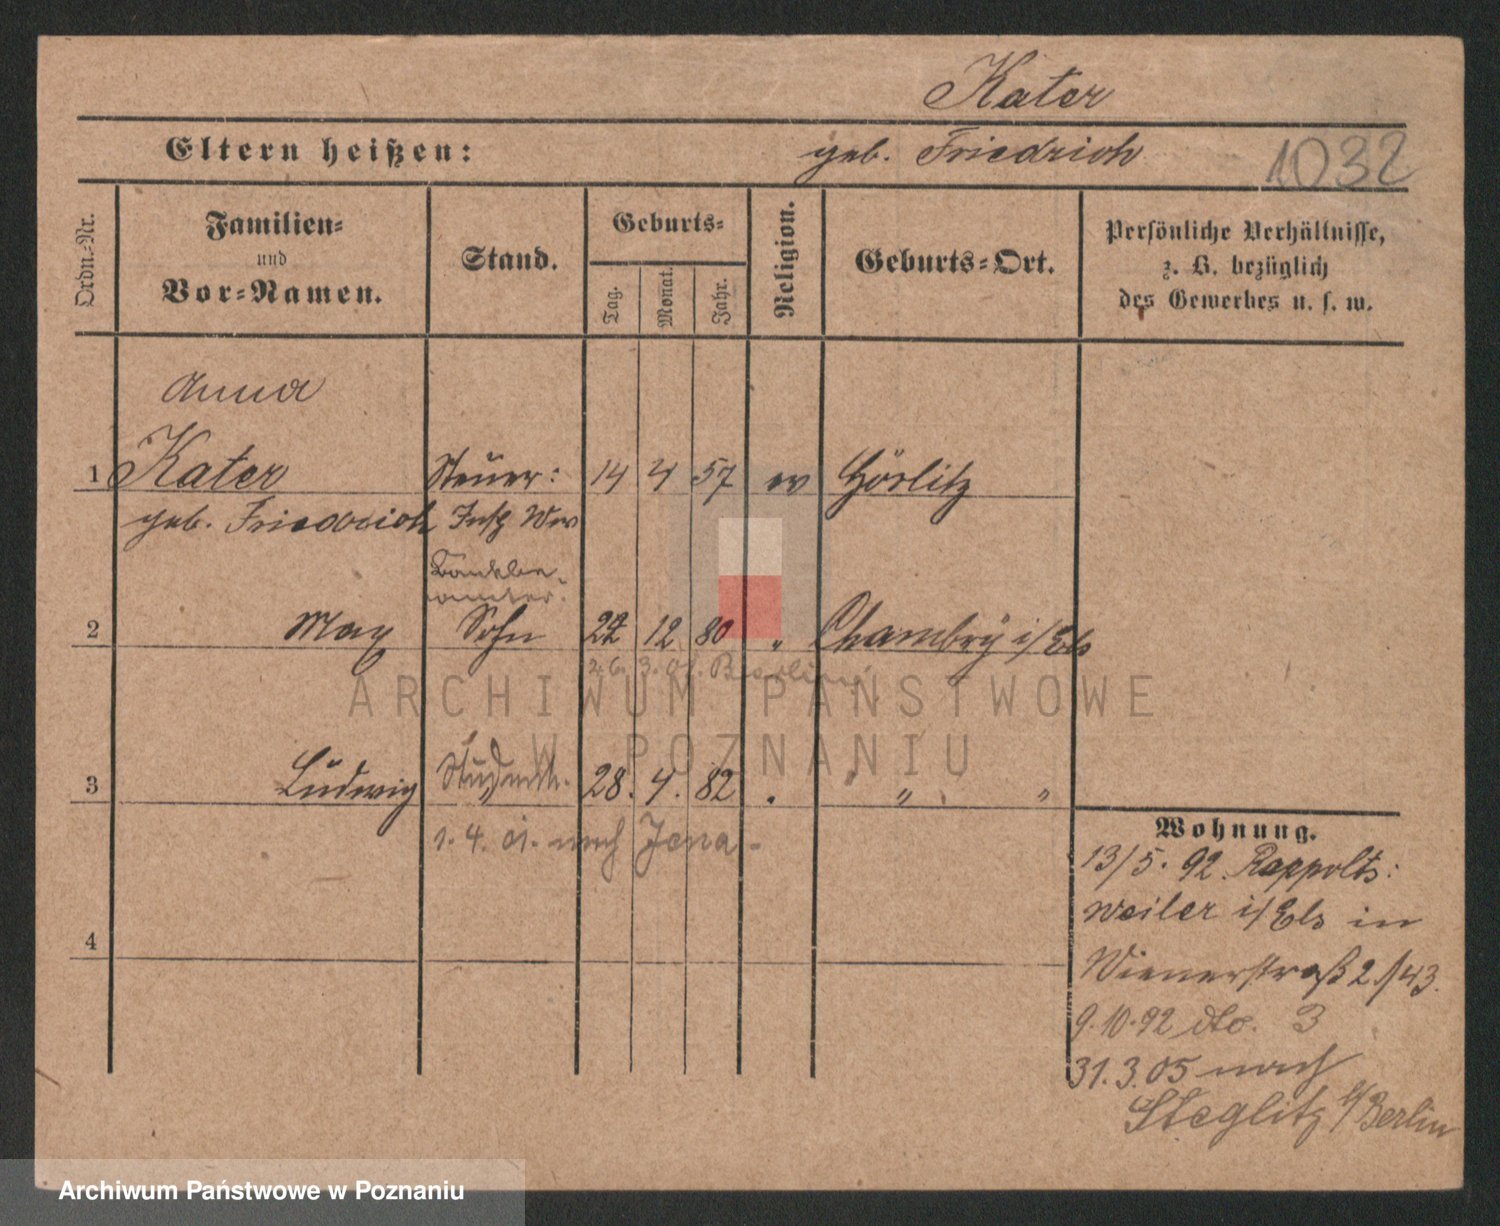 Kater
Eltern heißen: geb. Friedrich 1032
Ordn.-Nr.
Familien-
und
Vor-Namen.
Stand.
Geburts-
Tag.
Monat.
Jahr.
Religion.
Geburts-Ort.
Persönliche Verhältnisse,
z. B. bezüglich
des Gewerbes u. s. w.
Anna
1 Kater Steuer: 14 4 57 ev Görlitz
geb. Friedrich Insp Wwe
Bankbe-
amter.
2 Max Sohn 22 12 80 " Chambrÿ i/Els
26. 3. 01. Berlin
ARCHIWUM PAŃSTWOWE
W POZNANIU
3 Ludwig Student. 28. 4. 82 " " "
1. 4. 01. nach Jena.
4
Wohnung.
13/5. 92. Rappolts:
weiler i/Els in
Wienerstraß 2./43.
9.10.92 dto. 3
31.3.05 nach
Steglitz b/Berlin
Archiwum Państwowe w Poznaniu